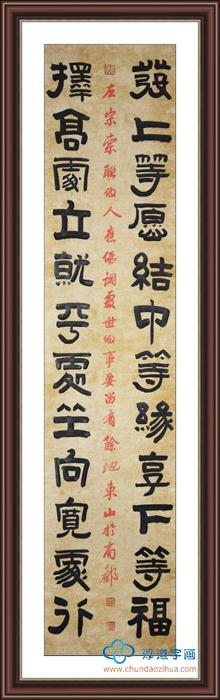 發上等愿結中等緣享下等福
左宗棠聯做人應低調處世做事要留有餘地東山於南都
擇高處立就平處坐向寬處行
淳道字画
www.chundaozihua.com